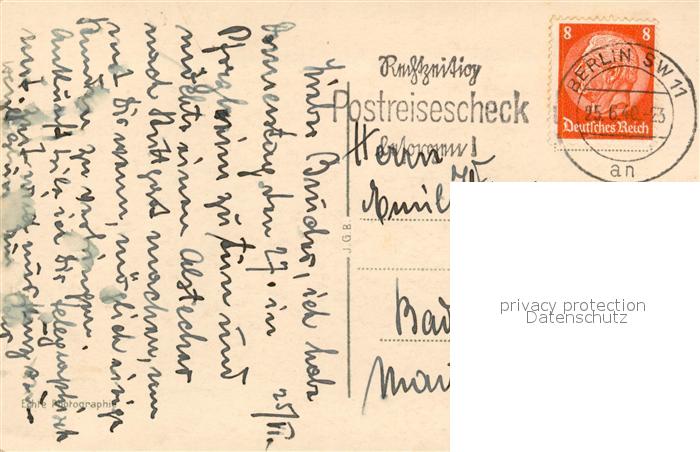 8 8
Deutsches Reich
BERLIN SW 11
25.6.40.-23
an
Rechtzeitig
Postreisescheck
besorgen!
Herrn
Emil
Bad
J.G.B.
Echte Photographie
25/VI.
Lieber Bruder, ich habe
Donnerstag, den 27. in
Pforzheim zu tun und
möchte einen Abstecher
nach Stuttgart machen, um
mit Dir wenn möglich einige
Stunden zu
Ankunft teile ich Dir telegraphisch
mit
privacy protection
Datenschutz